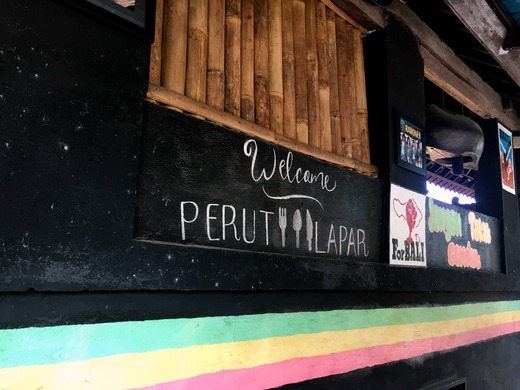 Welcome
PERUT LAPAR
ForBALI